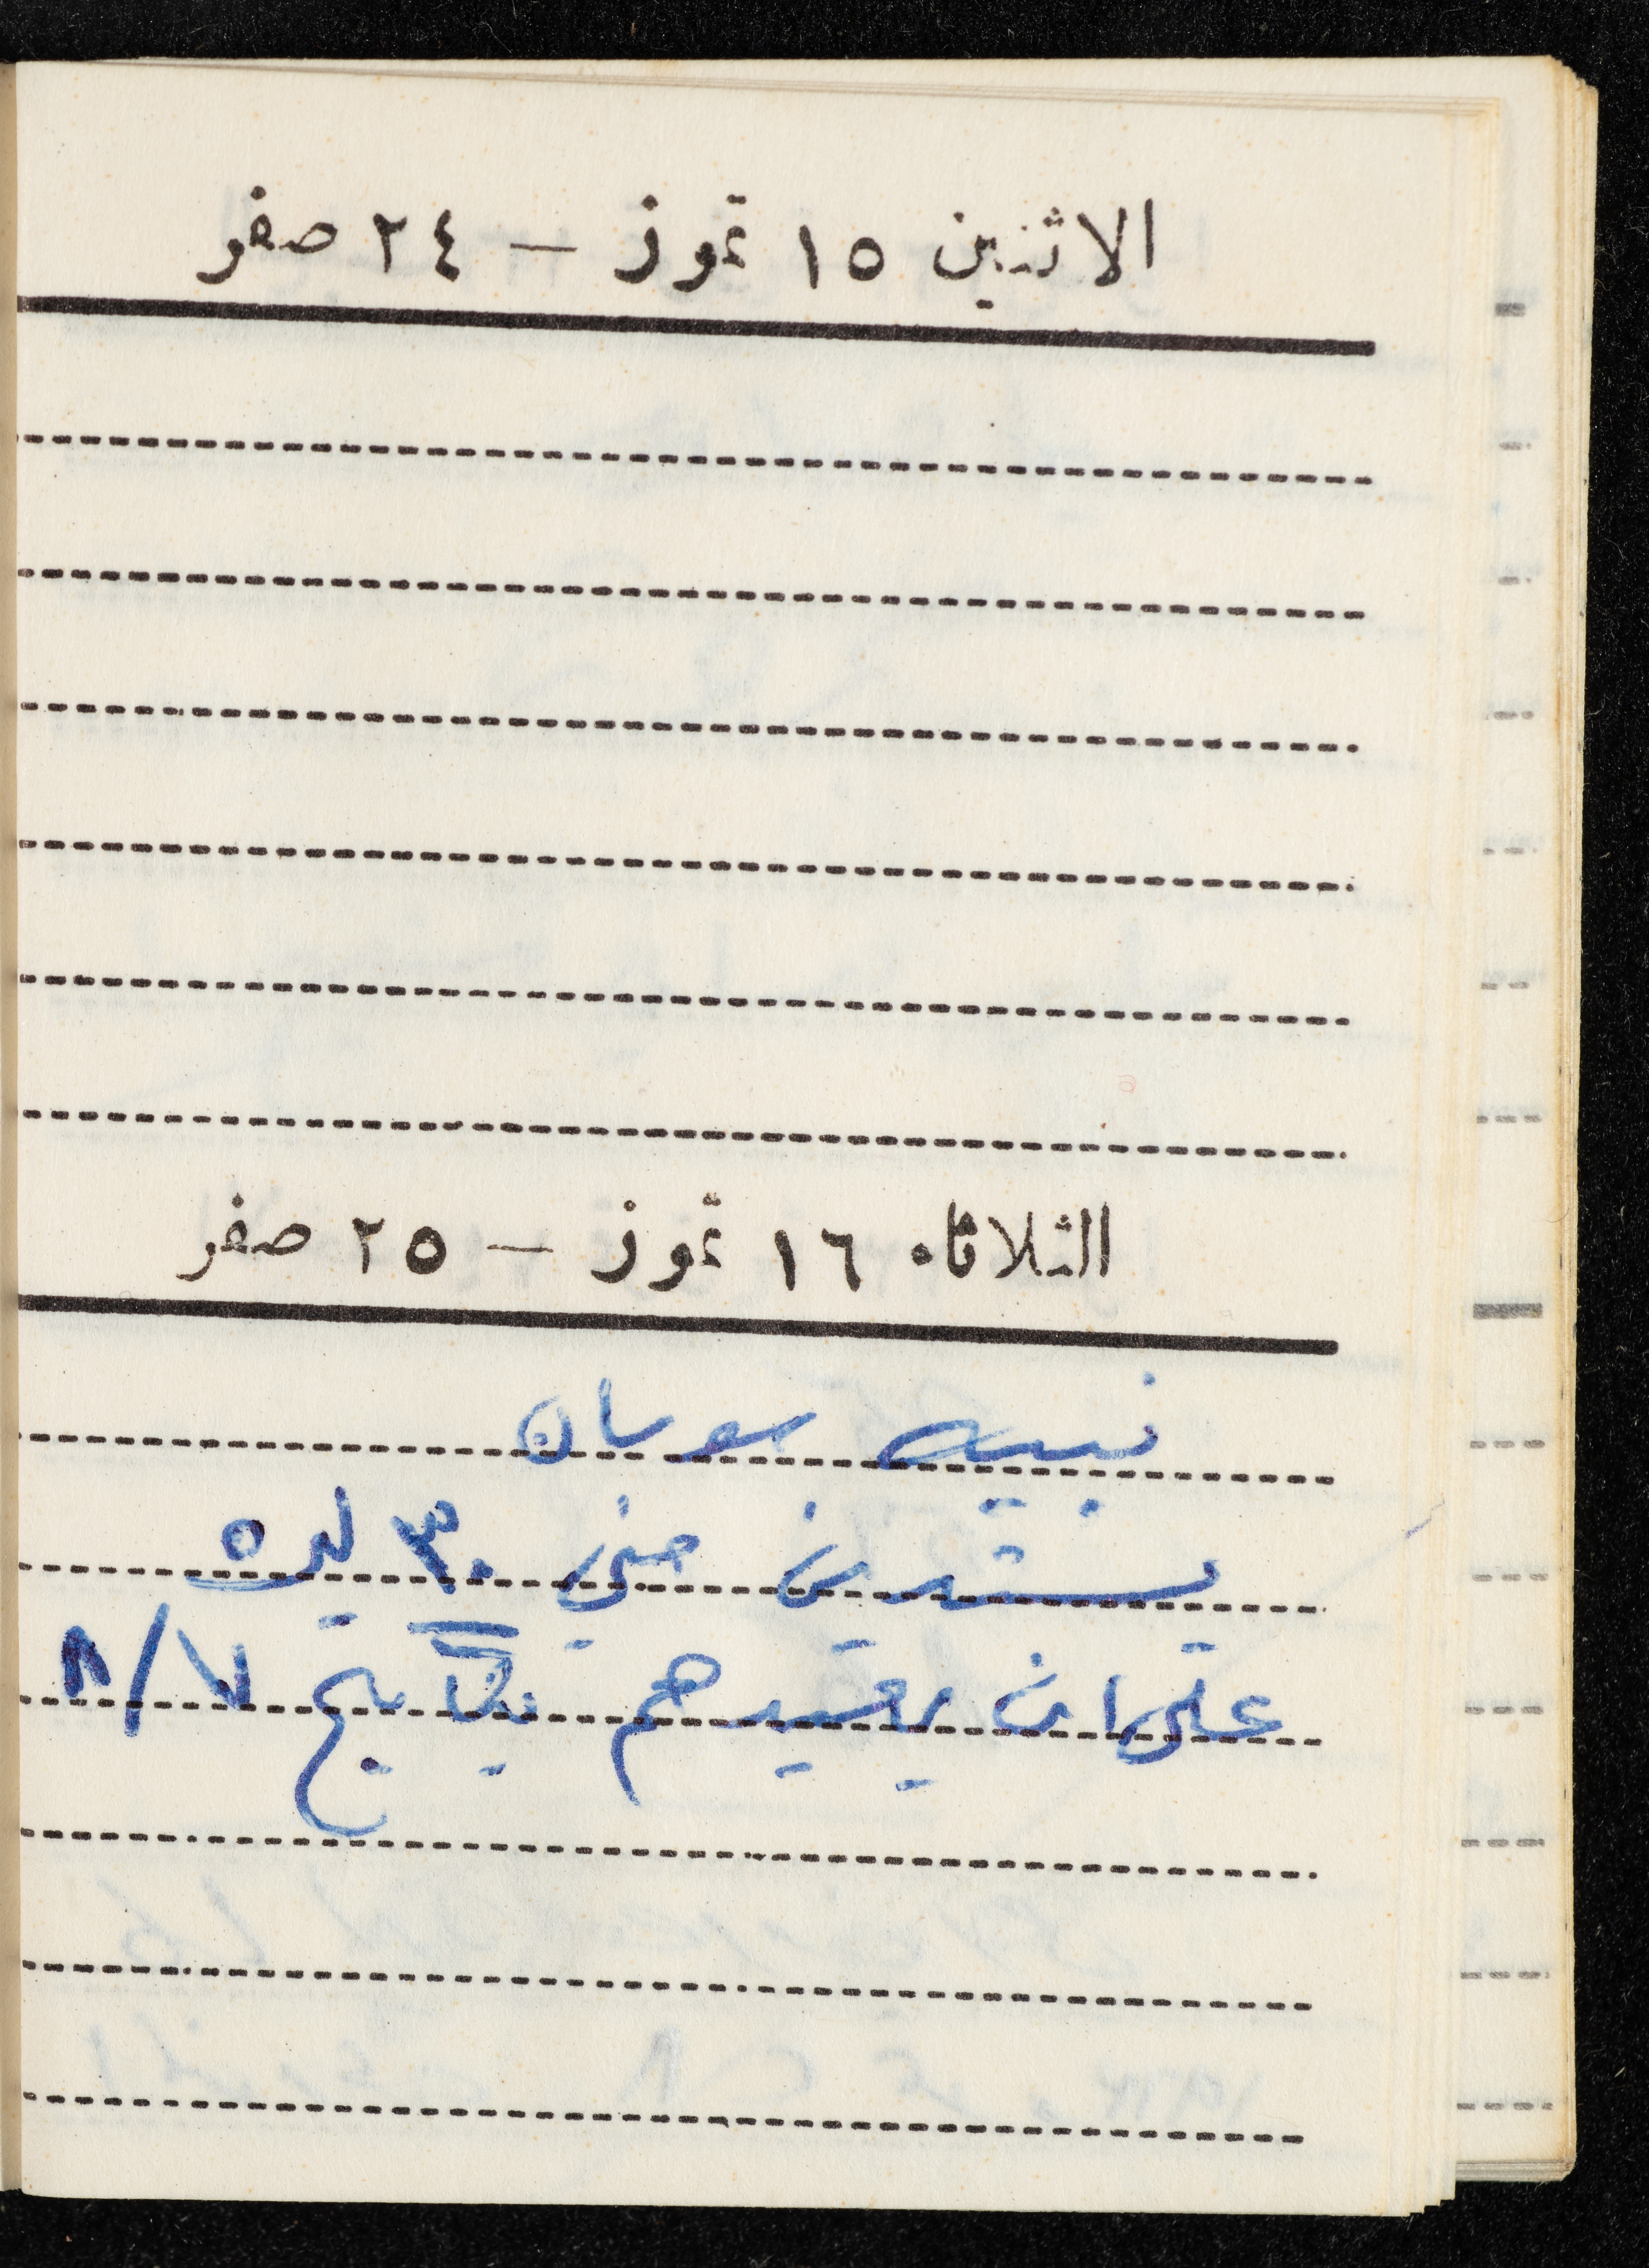 الاثنين ١٥ تموز — ٢٤ صفر
الثلاثاء ١٦ تموز — ٢٥ صفر
نبيه سوسان
يستدين مني ٣٠ ليره
على ان يعيدهم بتاريخ ٨/٧